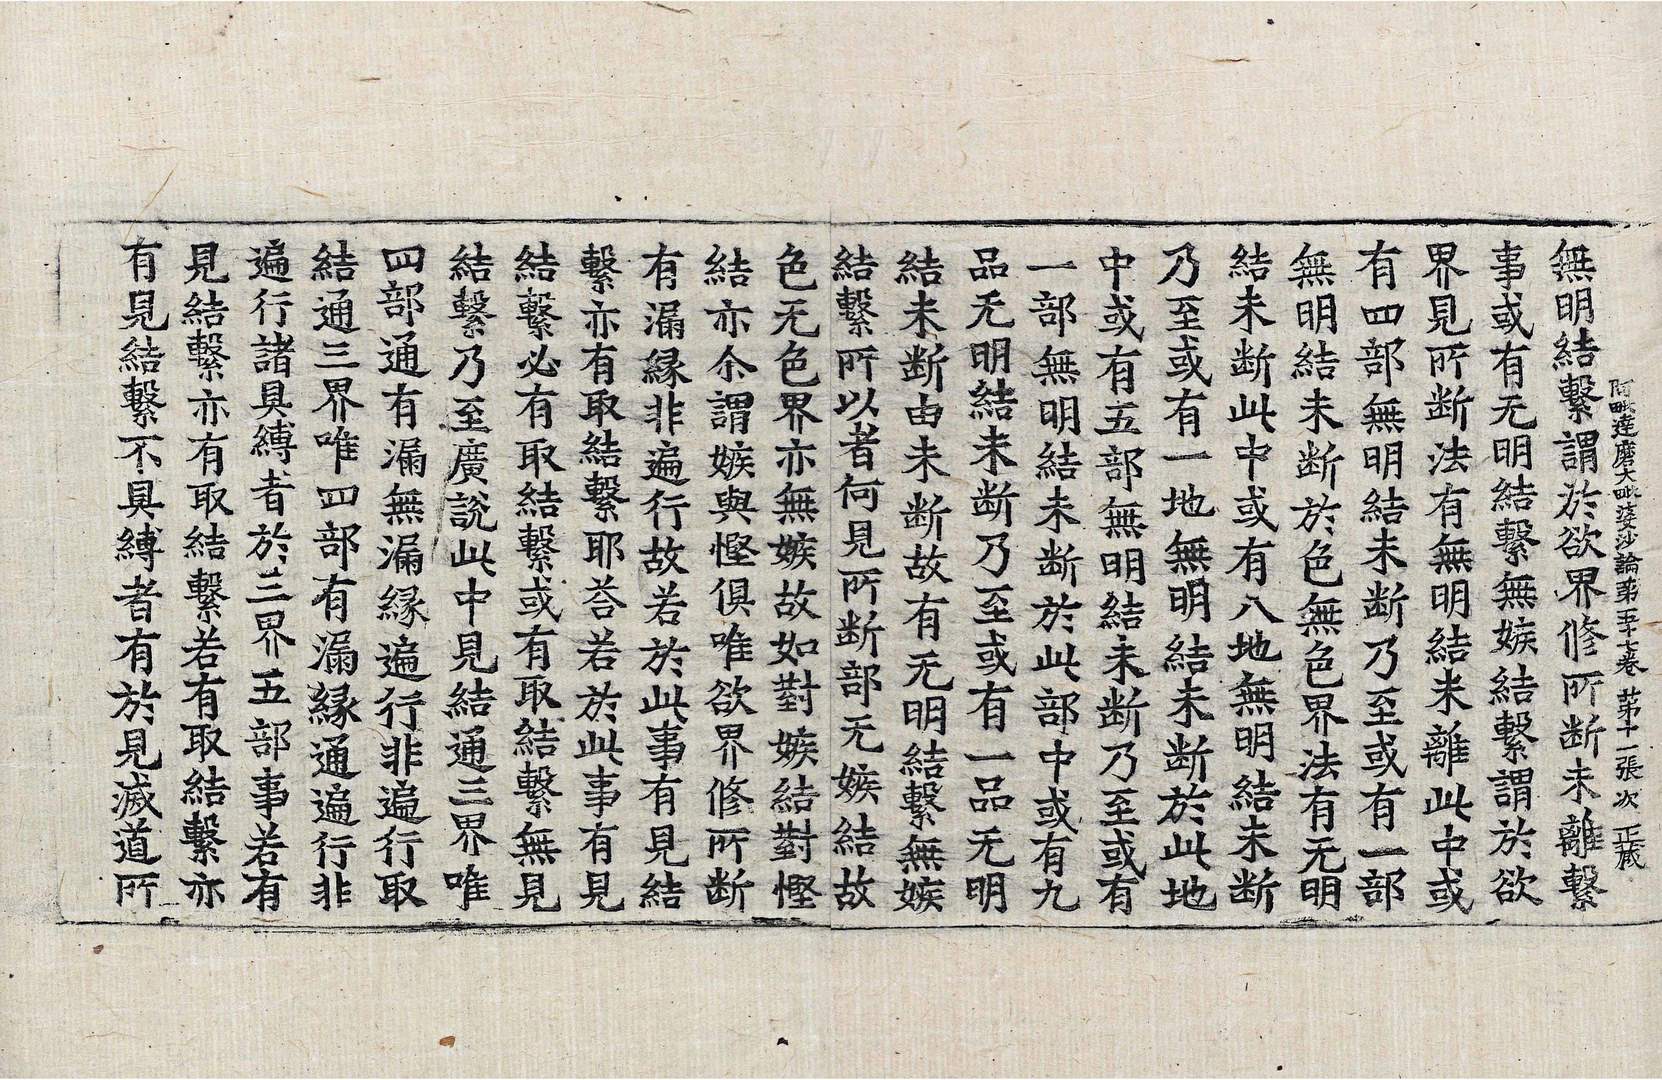 阿毗達磨大毗婆沙論第五十七卷 第十一張 次 正藏
無明結繫謂於欲界修所断未離繫
事或有无明結繫無嫉結繫謂於欲
界見所断法有無明結未離此中或
有四部無明結未断乃至或有一部
無明結未断於色無色界法有无明
結未断此中或有八地無明結未断
乃至或有一地無明結未断於此地
中或有五部無明結未断乃至或有
一部無明結未断於此部中或有九
品无明結未断乃至或有一品无明
結未断由未断故有无明結繫無嫉
結繫所以者何見所断部无嫉結故
色无色界亦無嫉故如對嫉結對慳
結亦尒謂嫉與慳俱唯欲界修所断
有漏縁非遍行故若於此事有見結
繫亦有取結繫耶荅若於此事有見
結繫必有取結繫或有取結繫無見
結繫乃至廣說此中見結通三界唯
四部通有漏無漏縁遍行非遍行取
結通三界唯四部有漏縁通遍行非
遍行諸具縛者於三界五部事若有
見結繫亦有取結繫若有取結繫亦
有見結繫不具縛者有於見滅道所